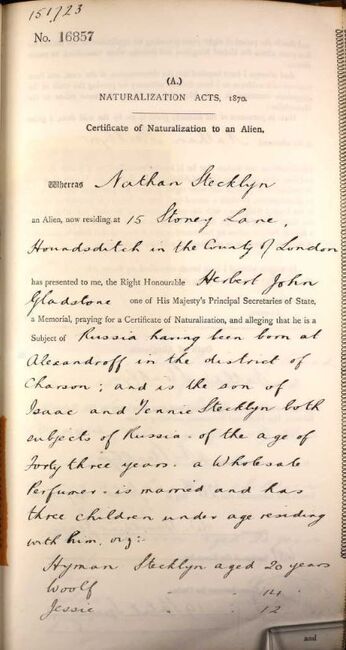 151723
No. 16857
(A.)
NATURALIZATION ACTS, 1870.
Certificate of Naturalization to an Alien.
Whereas Nathan Stecklyn
an Alien, now residing at 15 Stoney Lane,
Houndsditch in the County of London
has presented to me, the Right Honourable Herbert John
Gladstone one of His Majesty's Principal Secretaries of State,
a Memorial, praying for a Certificate of Naturalization, and alleging that he is a
Subject of Russia having been born at
Alexandroff in the district of
Charson; and is the son of
Isaac and Jennie Stecklyn both
subjects of Russia - of the age of
Forty three years - a Wholesale
Perfumer - is married and has
three children under age residing
with him, viz:-
Hyman Stecklyn aged 20 years
Woolf " " 14 "
Jessie " " 12 "
and